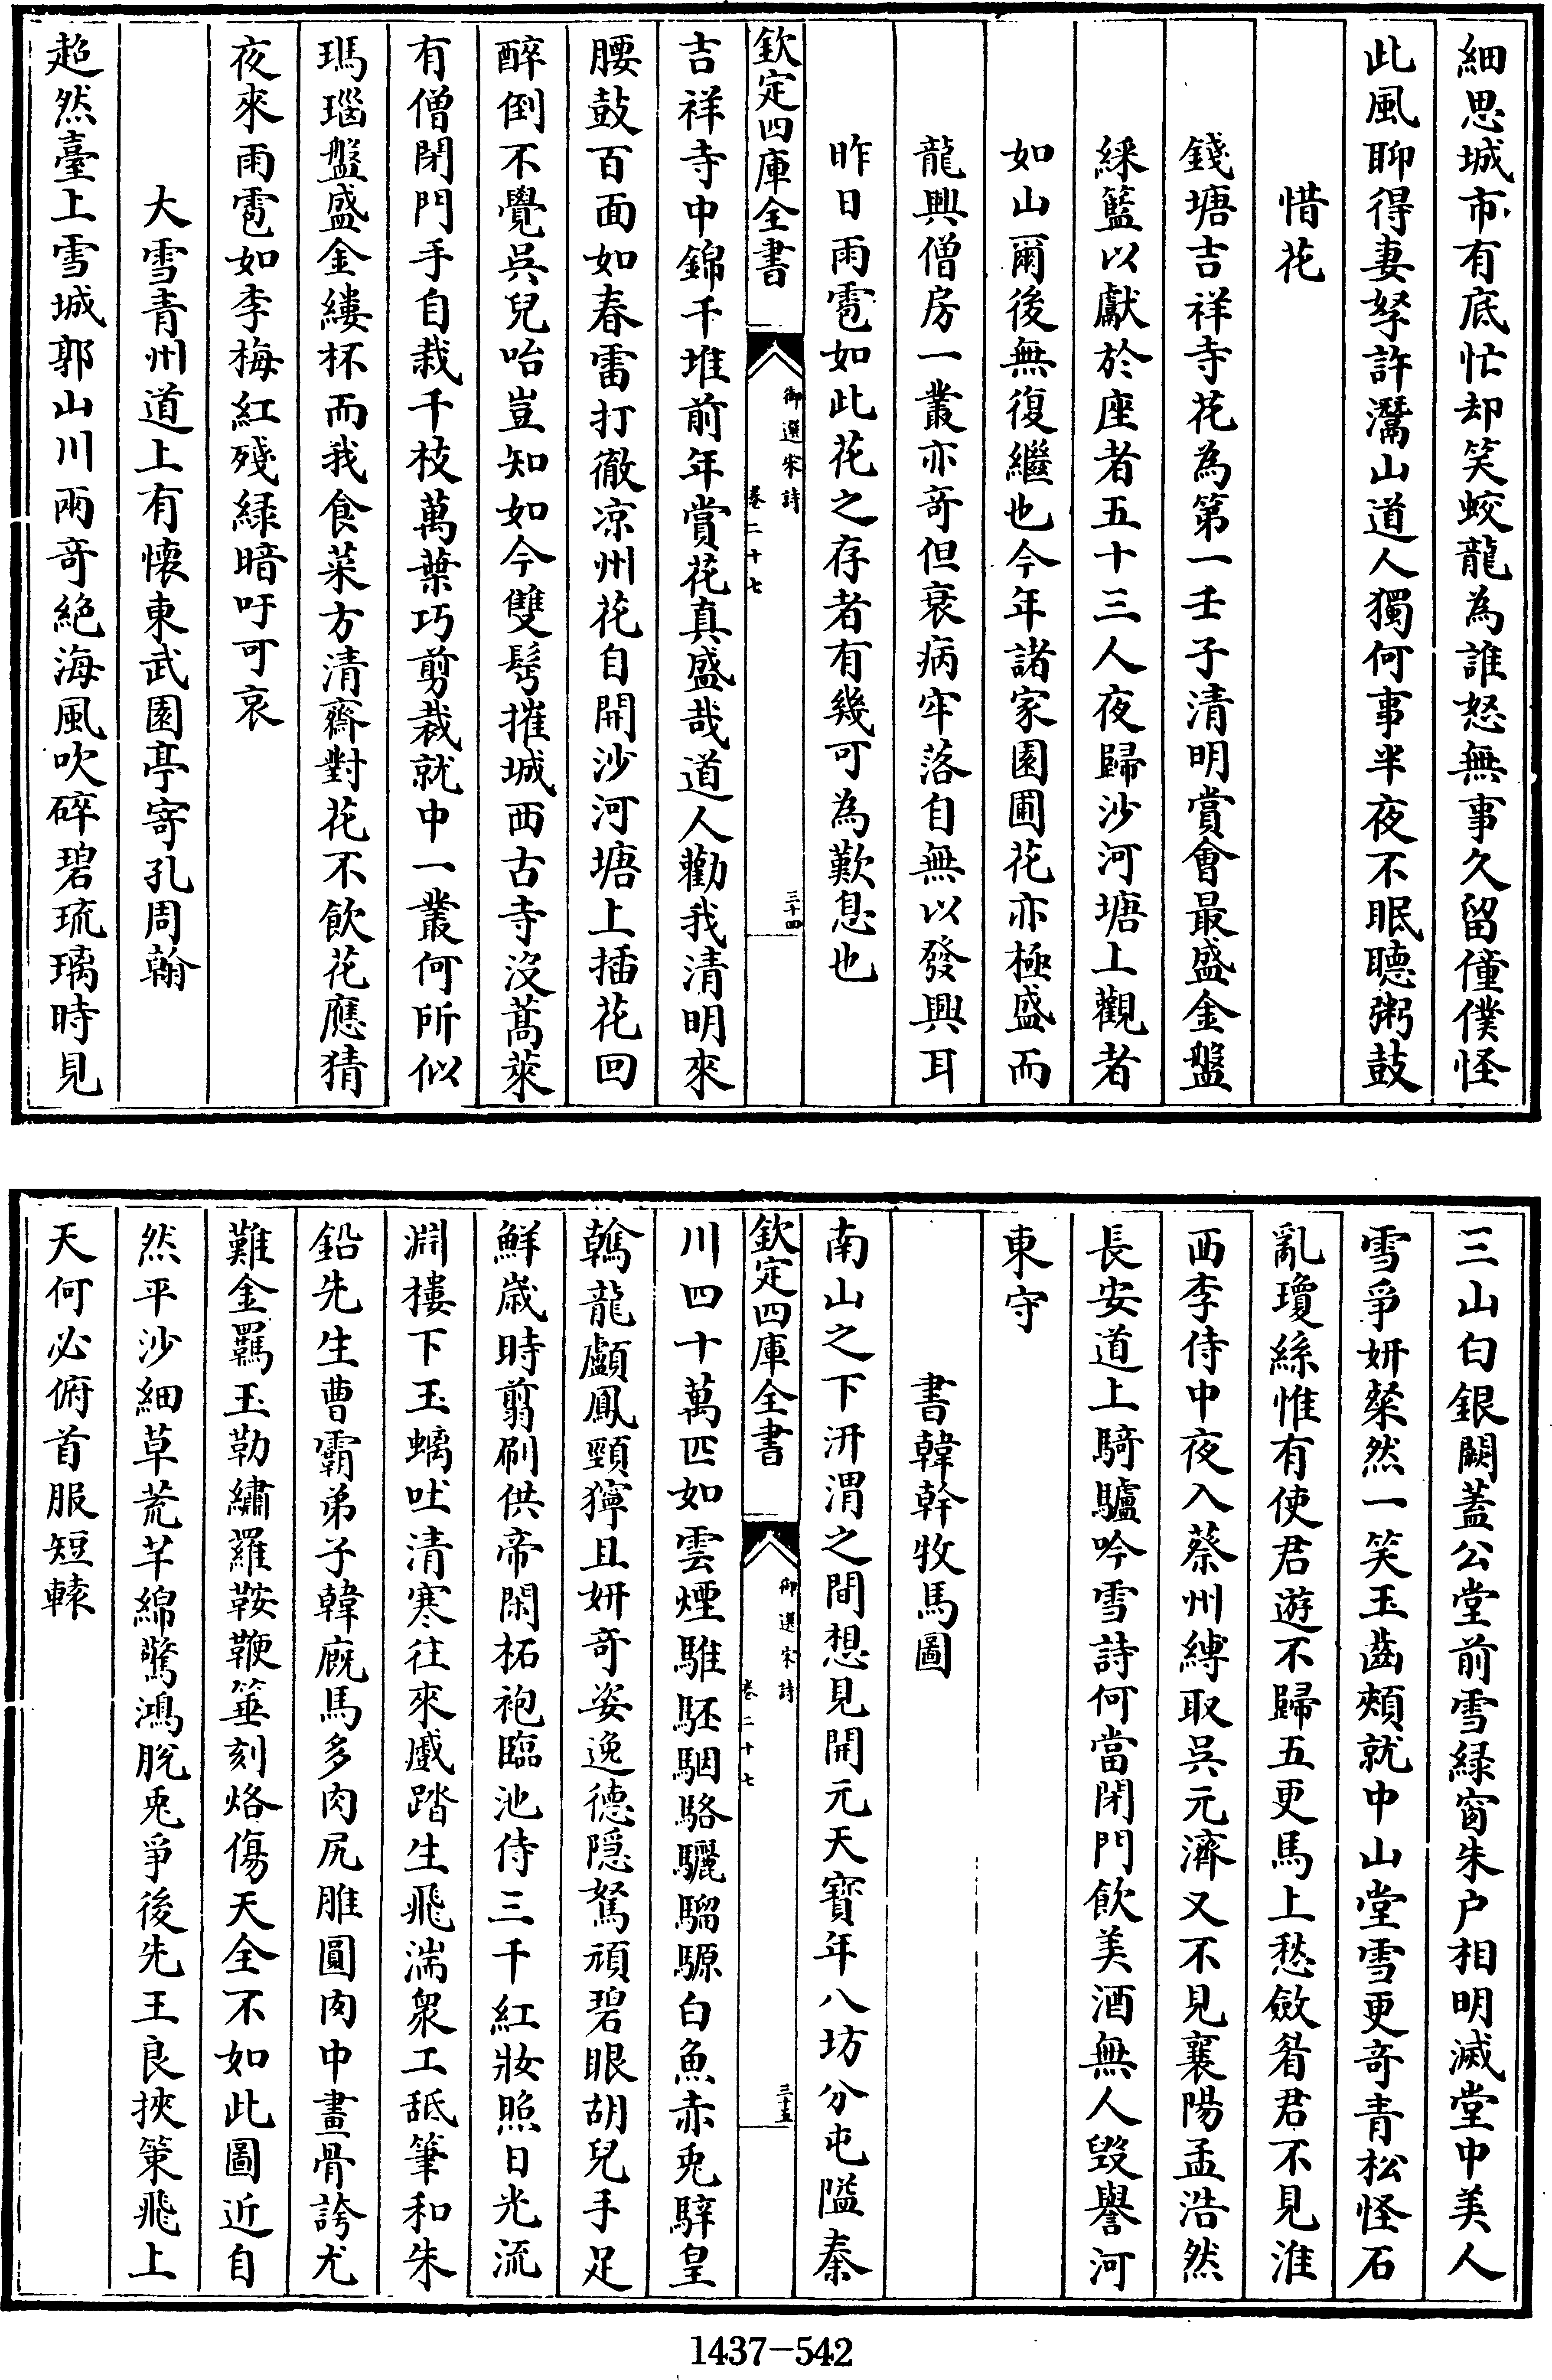 細思城市有底忙却笑蛟龍為誰怒無事久留僮僕怪
此風聊得妻孥許灊山道人獨何事半夜不眠聽粥鼓
惜花
錢塘吉祥寺花為第一壬子清明賞會最盛金盤
綵籃以獻於座者五十三人夜歸沙河塘上觀者
如山爾後無復繼也今年諸家園圃花亦極盛而
龍興僧房一叢亦竒但衰病牢落自無以發興耳
昨日雨雹如此花之存者有幾可為歎息也
欽定四庫全書
御選宋詩
卷二十七
三十四
吉祥寺中錦千堆前年賞花真盛哉道人勸我清明來
腰鼓百面如春雷打徹凉州花自開沙河塘上插花回
醉倒不覺吳兒咍豈知如今雙髩摧城西古寺沒蒿萊
有僧閉門手自栽千枝萬葉巧剪裁就中一叢何所似
瑪瑙盤盛金縷杯而我食菜方清齋對花不飲花應猜
夜來雨雹如李梅紅殘緑暗吁可哀
大雪青州道上有懷東武園亭寄孔周翰
超然臺上雪城郭山川兩竒絶海風吹碎碧琉璃時見
三山白銀闕蓋公堂前雪緑窗朱户相明滅堂中美人
雪爭妍粲然一笑玉齒頰就中山堂雪更竒青松怪石
亂瓊絲惟有使君遊不歸五更馬上愁斂眉君不見淮
西李侍中夜入蔡州縛取吳元濟又不見襄陽孟浩然
長安道上騎驢吟雪詩何當閉門飲美酒無人毀譽河
東守
書韓幹牧馬圖
南山之下汧渭之間想見開元天寳年八坊分屯隘秦
欽定四庫全書
御選宋詩
卷二十七
三十五
川四十萬匹如雲煙騅駓駰駱驪騮騵白魚赤兎騂皇
䮧龍顱鳳頸獰且妍竒姿逸德隠駑頑碧眼胡兒手足
鮮歳時翦刷供帝閑柘袍臨池侍三千紅妝照日光流
淵樓下玉螭吐清寒往來蹙踏生飛湍衆工舐筆和朱
鉛先生曹霸弟子韓廐馬多肉尻脽圓肉中畫骨誇尤
難金羈玉勒繡羅鞍鞭箠刻烙傷天全不如此圖近自
然平沙細草荒芊綿驚鴻脫兎爭後先王良挾策飛上
天何必俯首服短轅
1437-542